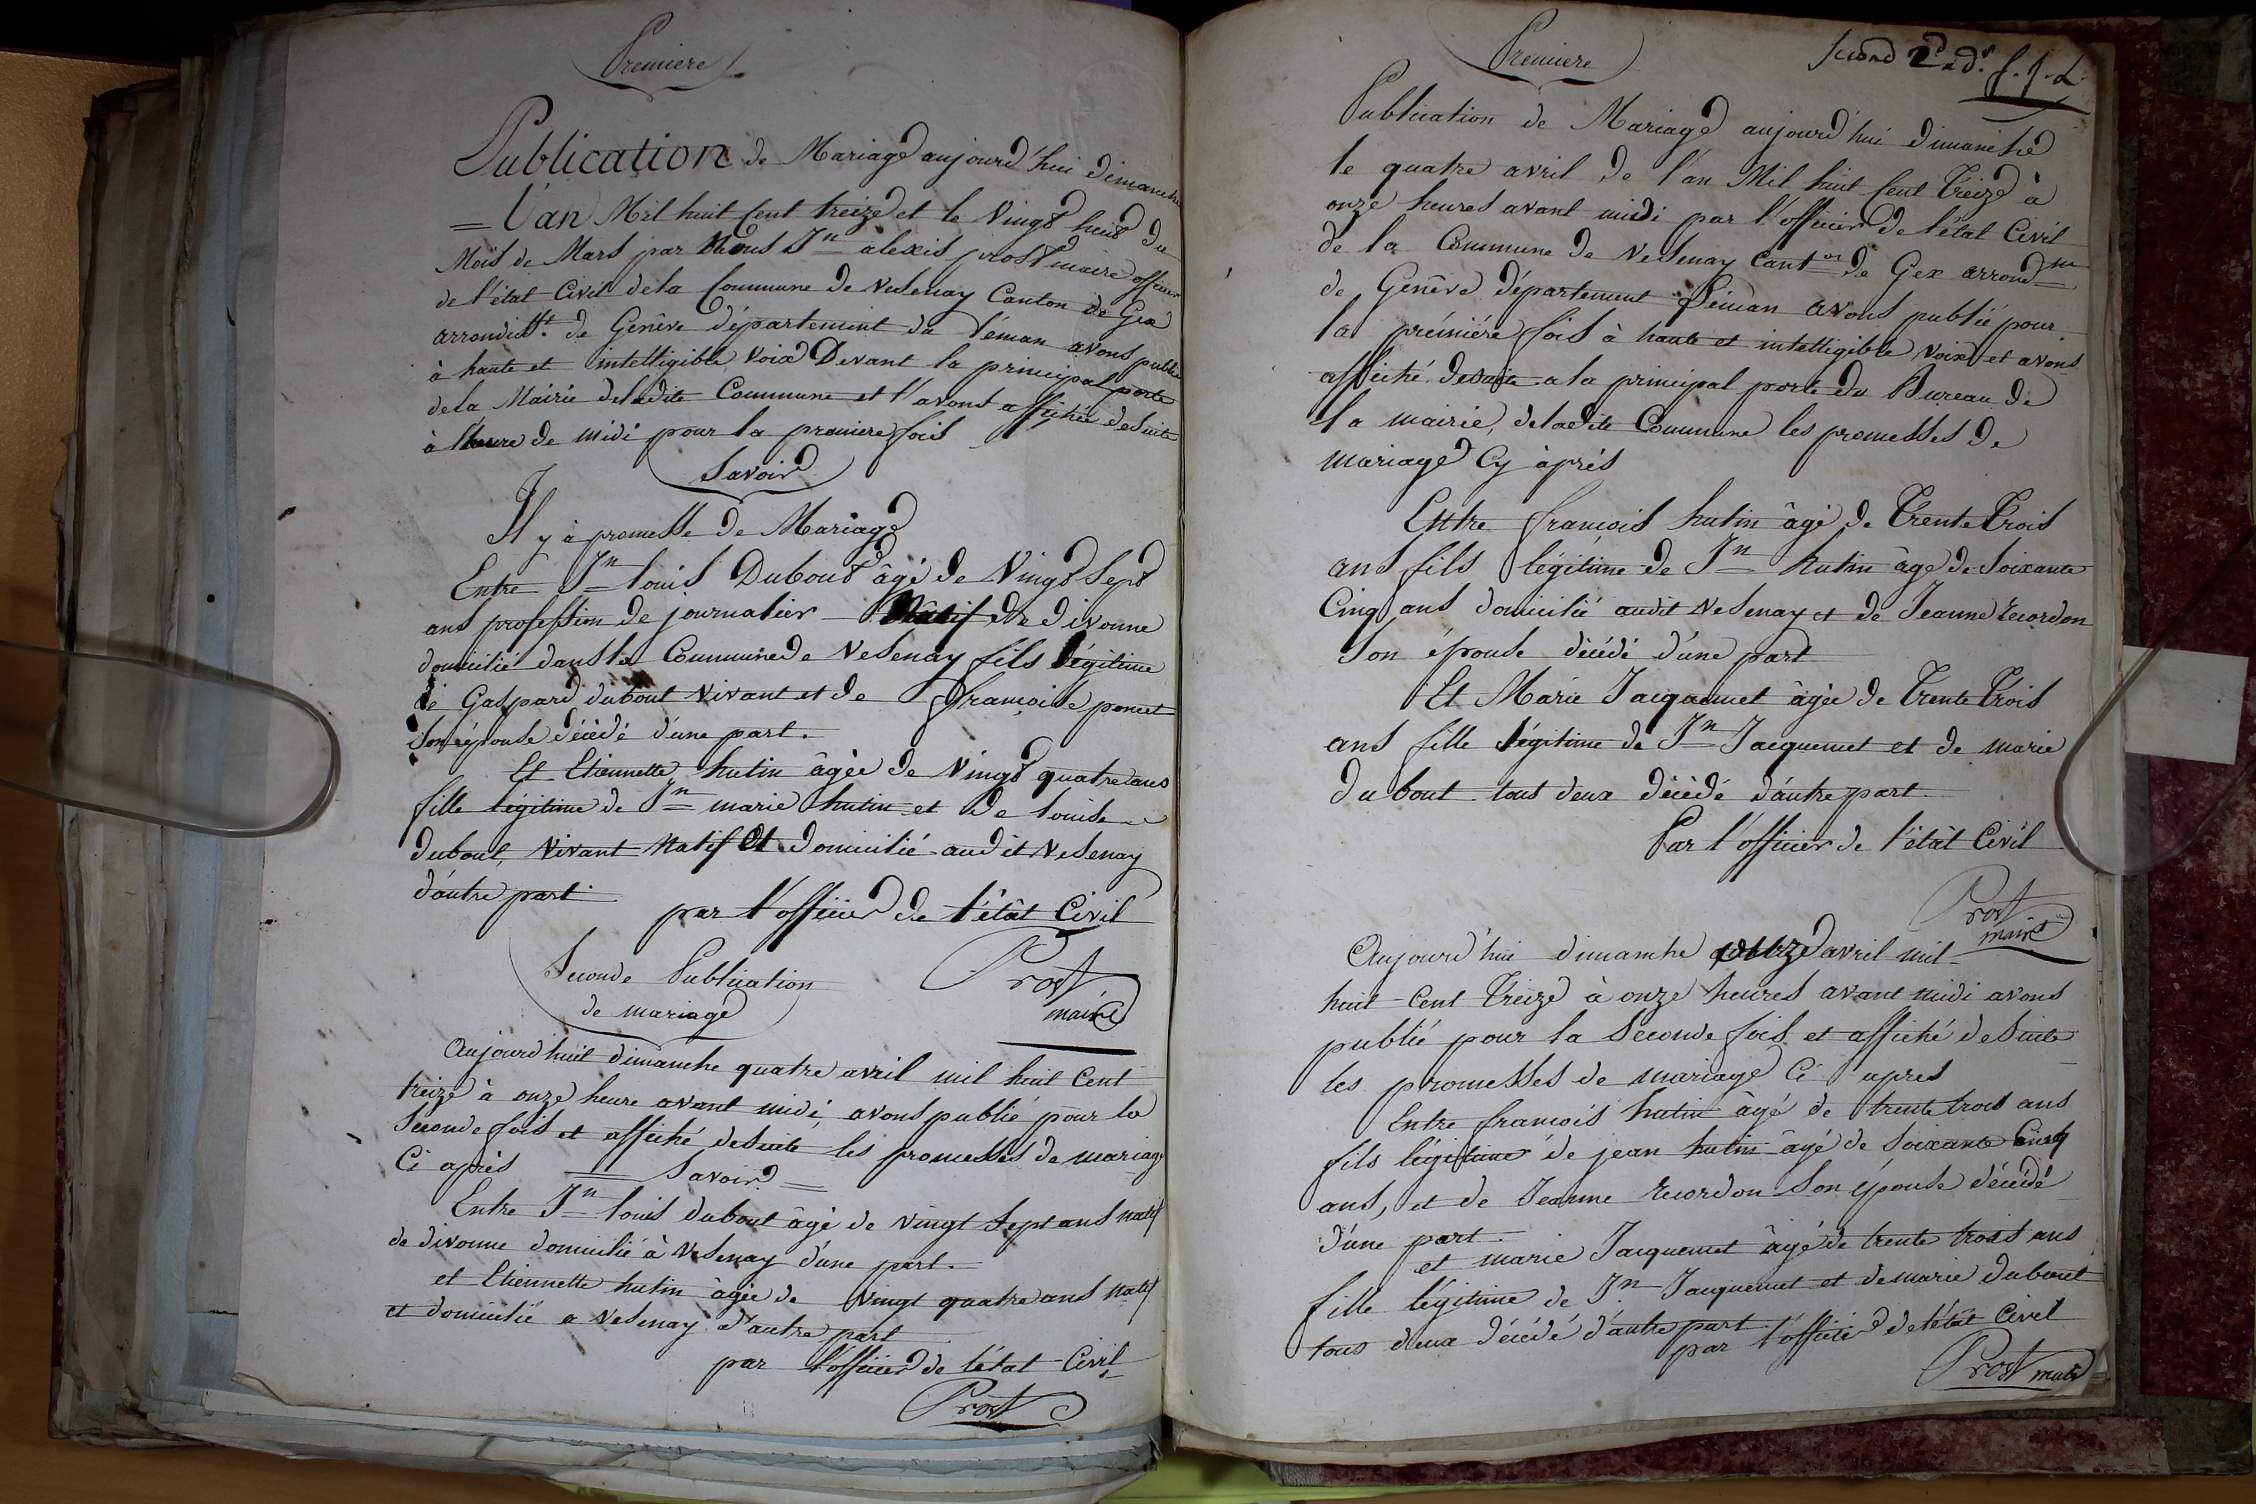 Premiere
Publication de Mariage aujourd'hui dimanche
= L'an Mil huit Cent treize et le Vingt huit du
Mois de Mars par Nous Jn alexis prost maire officier
de l'état Civil dela Commune de Vesenay Canton de Gex
arrondisst. de Genêve département du Léman avons publié
à haute et intelligible Voix Devant la principal porte
dela Mairie deladite Commune et l'avons affichée desuite
à l'heure de midi pour la premiere fois
Savoir
Il y à promesse de Mariage
Entre Jn louis Dubout âgé de Vingt Sept
ans profession de journalier Nâtif de divonne
domicilié dans la Commune de Vesenay fils légitime
de Gaspard dubout vivant et de françoise poncet
Son épouse décédé d'une part.
Et Etiennette hutin âgèe de Vingt quatre ans
fille légitime de Jn marie hutin et de louise
dubout, vivant Natif et domicilié audit Vesenay
d'autre part.
par l'officier de l'êtât Civil
Seconde Publication
de mariage
Prost
maire
Aujourd huit dimanche quatre avril mil huit Cent
treize à onze heure avant midi, avons publié pour la
Seconde fois et affiché desuite les promesses de mariage
Ci après = Savoir =
Entre Jn louis dubout âgé de vingt Sept ans natif
de divonne domicilié à Vesenay d'une part.
et Etiennette hutin âgée de vingt quatre ans natif
et domicilié a Vesenay d'autre part
par l'officier de l'état Civil
Prost
Premiere
Second 2e
Publication de Mariage aujourd'hui dimanche
le quatre avril de l'an Mil huit Cent Treize à
onze heures avant midi par l'officier de l'état Civil
de la Commune de Vesenay Canton de Gex arrondm
de Genêve département Léman avons publié pour
la prémiére fois à haute et intelligible voix et avons
affiché desuite a la principal porte du Bureau de
la mairie, deladite Commune les promesses de
mariage Cy àprés
Entre françois hutin âgé de Trente Trois
ans fils légitime de Jn hutin âge de Soixante
Cinq ans domicilié audit Vesenay et de Jeanne recordon
Son épouse décédé d'une part
Et Marie Jacquemet âgée de Trente Trois
ans fille légitime de Jn Jacquemet et de marie
dubout tous deux décédé d'autre part
Par l'officier de l'étât Civil
Prost
maire
Aujourd'hui dimanche onze avril mil
huit-Cent Treize à onze heures avant midi avons
publié pour la Seconde fois et affiché desuite
les promesses de mariage Ci apres
Entre françois hutin âgé de trente trois ans
fils légitime de jean hutin âgé de Soixante Cinq
ans, et de Jeanne recordon Son épouse décédé
d'une part.
et marie Jacquemet âgé de trente trois ans
fille légitime de Jn Jacquemet et de marie dubout
tous deux décédé d'autre part.
par l'officier de l'état Civil
Prost maire